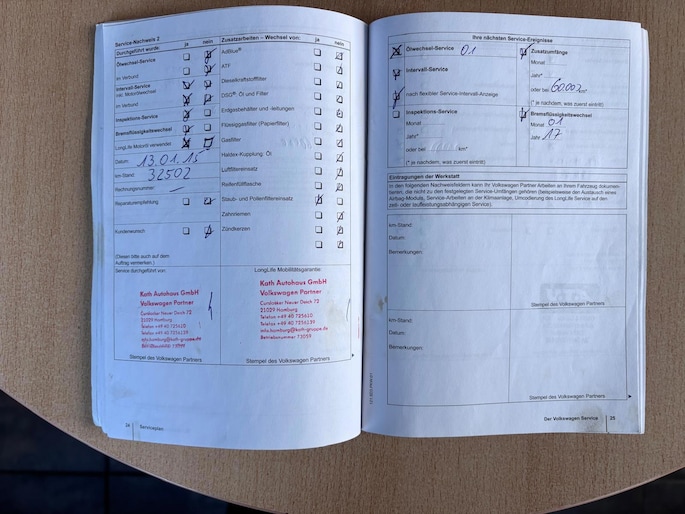 Service-Nachweis 2
Durchgeführt wurde: ja nein
Ölwechsel-Service
im Verbund
Intervall-Service
inkl. Motorölwechsel
im Verbund
Inspektions-Service
Bremsflüssigkeitswechsel
LongLife Motoröl verwendet
Datum: 13.01.15
km-Stand: 32502
Rechnungsnummer:
Reparaturempfehlung
Kundenwunsch
(Diesen bitte auch auf dem
Auftrag vermerken.)
Service durchgeführt von:
Kath Autohaus GmbH
Volkswagen Partner
Curslacker Neuer Deich 72
21029 Hamburg
Telefon +49 40 725620
Telefax +49 40 7256139
info.hamburg@kath-gruppe.de
Betriebsnummer 73059
Stempel des Volkswagen Partners
Zusatzarbeiten – Wechsel von: ja nein
AdBlue®
ATF
Dieselkraftstofffilter
DSG®: Öl und Filter
Erdgasbehälter und -leitungen
Flüssiggasfilter (Papierfilter)
Gasfilter
Haldex-Kupplung: Öl
Luftfiltereinsatz
Reifenfüllflasche
Staub- und Pollenfiltereinsatz
Zahnriemen
Zündkerzen
LongLife Mobilitätsgarantie:
Kath Autohaus GmbH
Volkswagen Partner
Curslacker Neuer Deich 72
21029 Hamburg
Telefon +49 40 725620
Telefax +49 40 7256139
info.hamburg@kath-gruppe.de
Betriebsnummer 73059
Stempel des Volkswagen Partners
24 Serviceplan
Ihre nächsten Service-Ereignisse
Ölwechsel-Service 01
Intervall-Service
nach flexibler Service-Intervall-Anzeige
Inspektions-Service
Monat
Jahr*
oder bei km*
(* je nachdem, was zuerst eintritt)
Zusatzumfänge
Monat
Jahr*
oder bei 60.000 km*
(* je nachdem, was zuerst eintritt)
Bremsflüssigkeitswechsel
Monat 01
Jahr 17
Eintragungen der Werkstatt
In den folgenden Nachweisfeldern kann Ihr Volkswagen Partner Arbeiten an Ihrem Fahrzeug dokumen-
tieren, die nicht zu den festgelegten Service-Umfängen gehören (beispielsweise den Austausch eines
Airbag-Moduls, Service-Arbeiten an der Klimaanlage, Umcodierung des LongLife Service auf den
zeit- oder laufleistungsabhängigen Service).
km-Stand:
Datum:
Bemerkungen:
Stempel des Volkswagen Partners
km-Stand:
Datum:
Bemerkungen:
Stempel des Volkswagen Partners
Der Volkswagen Service 25